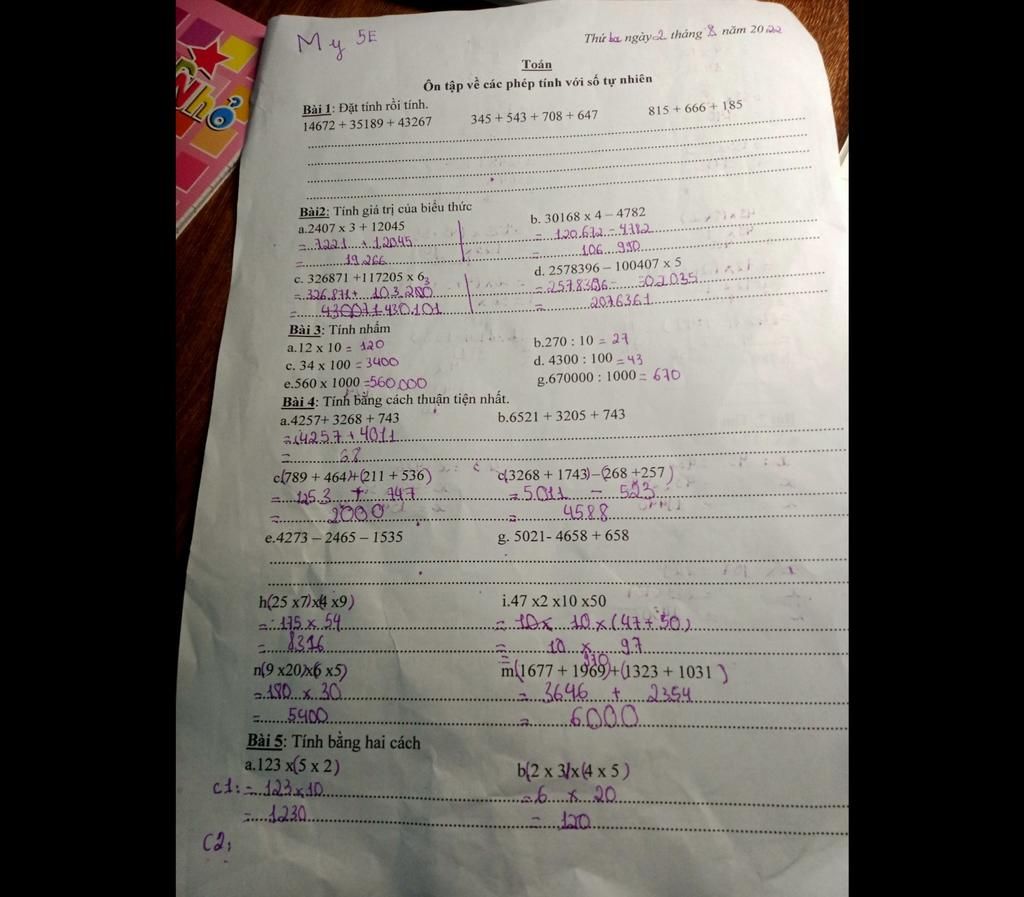 Nhỏ
My 5E
Thứ ba ngày 2 tháng 8 năm 2022
Toán
Ôn tập về các phép tính với số tự nhiên
Bài 1: Đặt tính rồi tính.
14672 + 35189 + 43267 345 + 543 + 708 + 647 815 + 666 + 185
Bài2: Tính giá trị của biểu thức
a.2407 x 3 + 12045 b. 30168 x 4 – 4782
= 7221 + 12045 = 120.672 - 4782
= 19.266 = 106 990
c. 326871 +117205 x 6 d. 2578396 – 100407 x 5
= 326.871+ 103.280 = 2578396 - 502035
= 430071 430.101 = 2076361
Bài 3: Tính nhẩm
a.12 x 10 = 120 b.270 : 10 = 27
c. 34 x 100 = 3400 d. 4300 : 100 = 43
e.560 x 1000 =560.000 g.670000 : 1000 = 670
Bài 4: Tính bằng cách thuận tiện nhất.
a.4257+ 3268 + 743 b.6521 + 3205 + 743
= 4257 + 4011
= 68
c(789 + 464)+(211 + 536) d(3268 + 1743)–(268 +257)
= 1253 + 747 = 5011 - 523
= 2000 = 4588
e.4273 – 2465 – 1535 g. 5021- 4658 + 658
h(25 x7)x(4 x9) i.47 x2 x10 x50
= 175 x 54 = 10 x 10 x (47 + 50)
= 8316 = 10 x 97
= 970
n(9 x20)x(6 x5) m(1677 + 1969)+(1323 + 1031)
= 180 x 30 = 3646 + 2354
= 5400 = 6000
Bài 5: Tính bằng hai cách
a.123 x(5 x 2) b(2 x 3)x(4 x 5)
C1: = 123x10 =6 x 20
= 1230 = 120
C2: